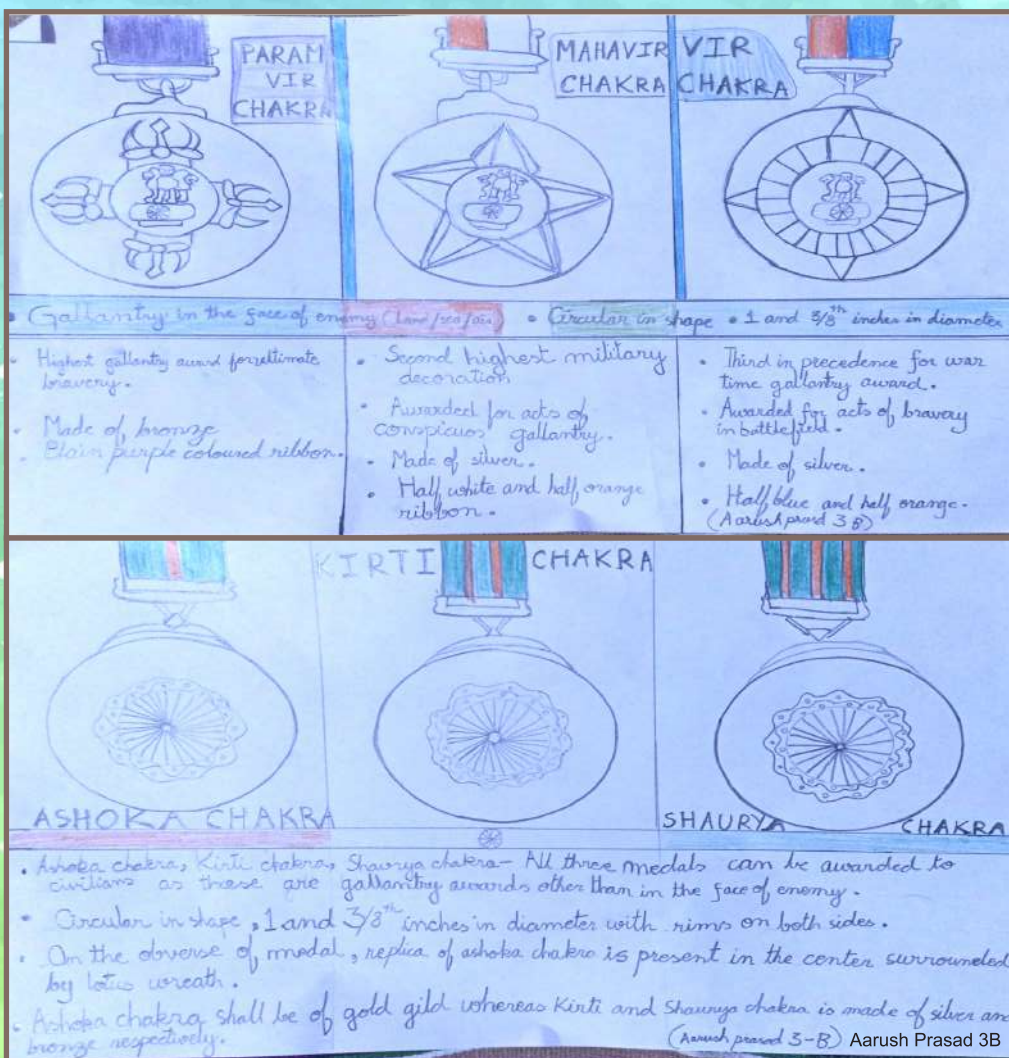 PARAM
VIR
CHAKRA
MAHAVIR
CHAKRA
VIR
CHAKRA
• Gallantry in the face of enemy (land/sea/air) • Circular in shape • 1 and 3/8th inches in diameter
• Highest gallantry award for ultimate
bravery.
• Made of bronze
• Plain purple coloured ribbon.
• Second highest military
decoration
• Awarded for acts of
conspicuos gallantry.
• Made of silver.
• Half white and half orange
ribbon.
• Third in precedence for war
time gallantry award.
• Awarded for acts of bravery
in battlefield.
• Made of silver.
• Half blue and half orange.
(Aarush prasad 3 B)
KIRTI CHAKRA
ASHOKA CHAKRA
SHAURYA CHAKRA
• Ashoka chakra, Kirti chakra, Shaurya chakra - All three medals can be awarded to
civilians as these are gallantry awards other than in the face of enemy.
• Circular in shape, 1 and 3/8th inches in diameter with rims on both sides.
• On the obverse of medal, replica of ashoka chakra is present in the center surrounded
by lotus wreath.
• Ashoka chakra shall be of gold gild whereas Kirti and Shaurya chakra is made of silver and
bronze respectively.
(Aarush prasad 3-B)
Aarush Prasad 3B